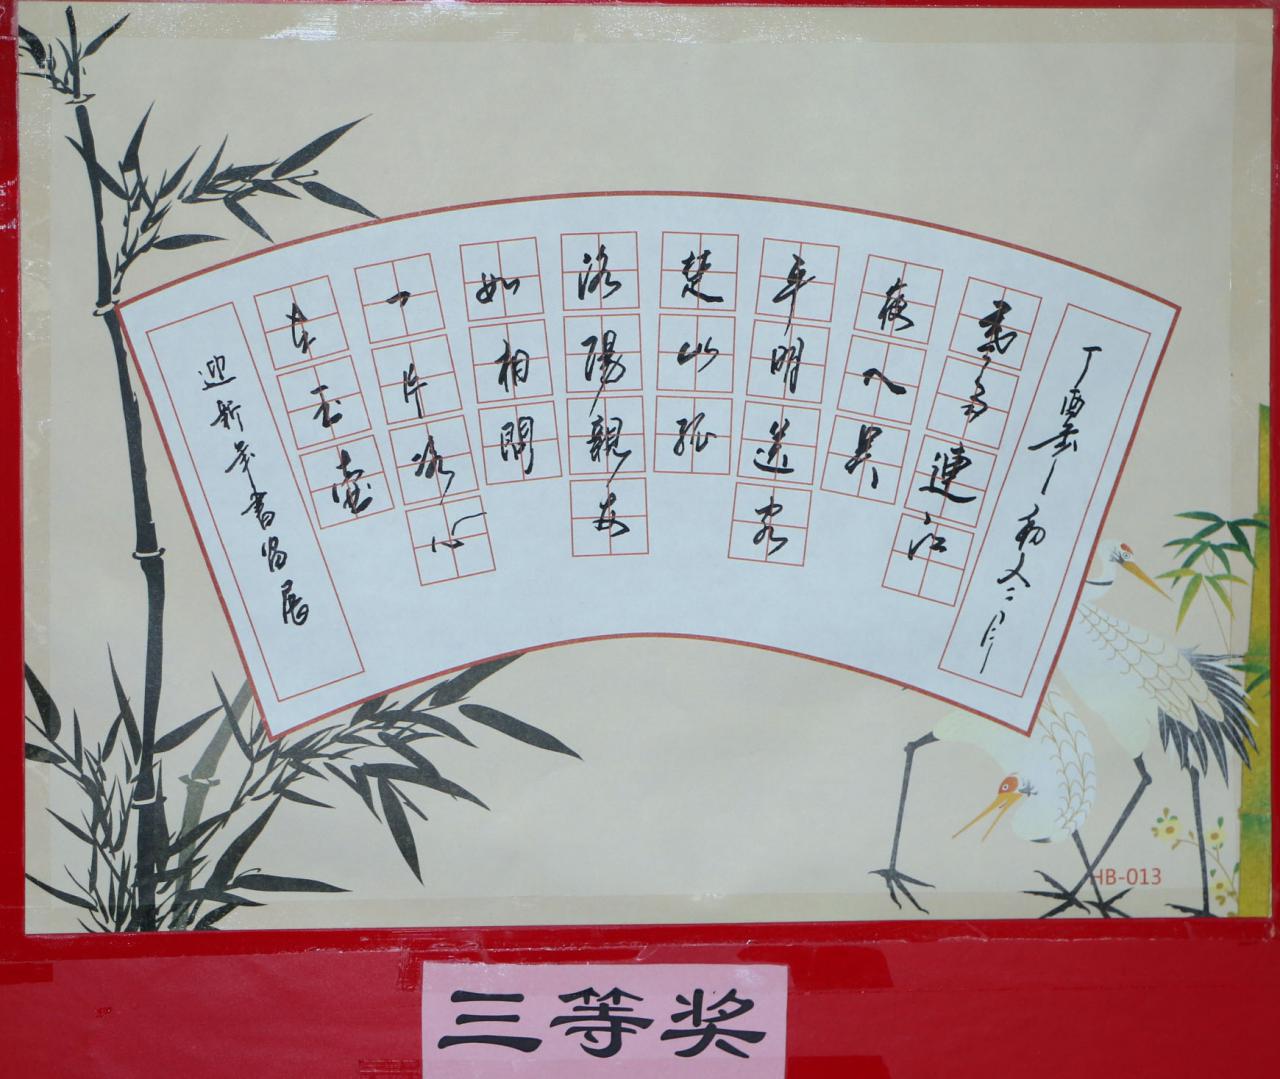 丁酉
寒雨連江
夜入吳
平明送客
楚山孤
洛陽親友
如相問
一片冰心
在玉壺
迎新年書寫展
HB-013
三等奖